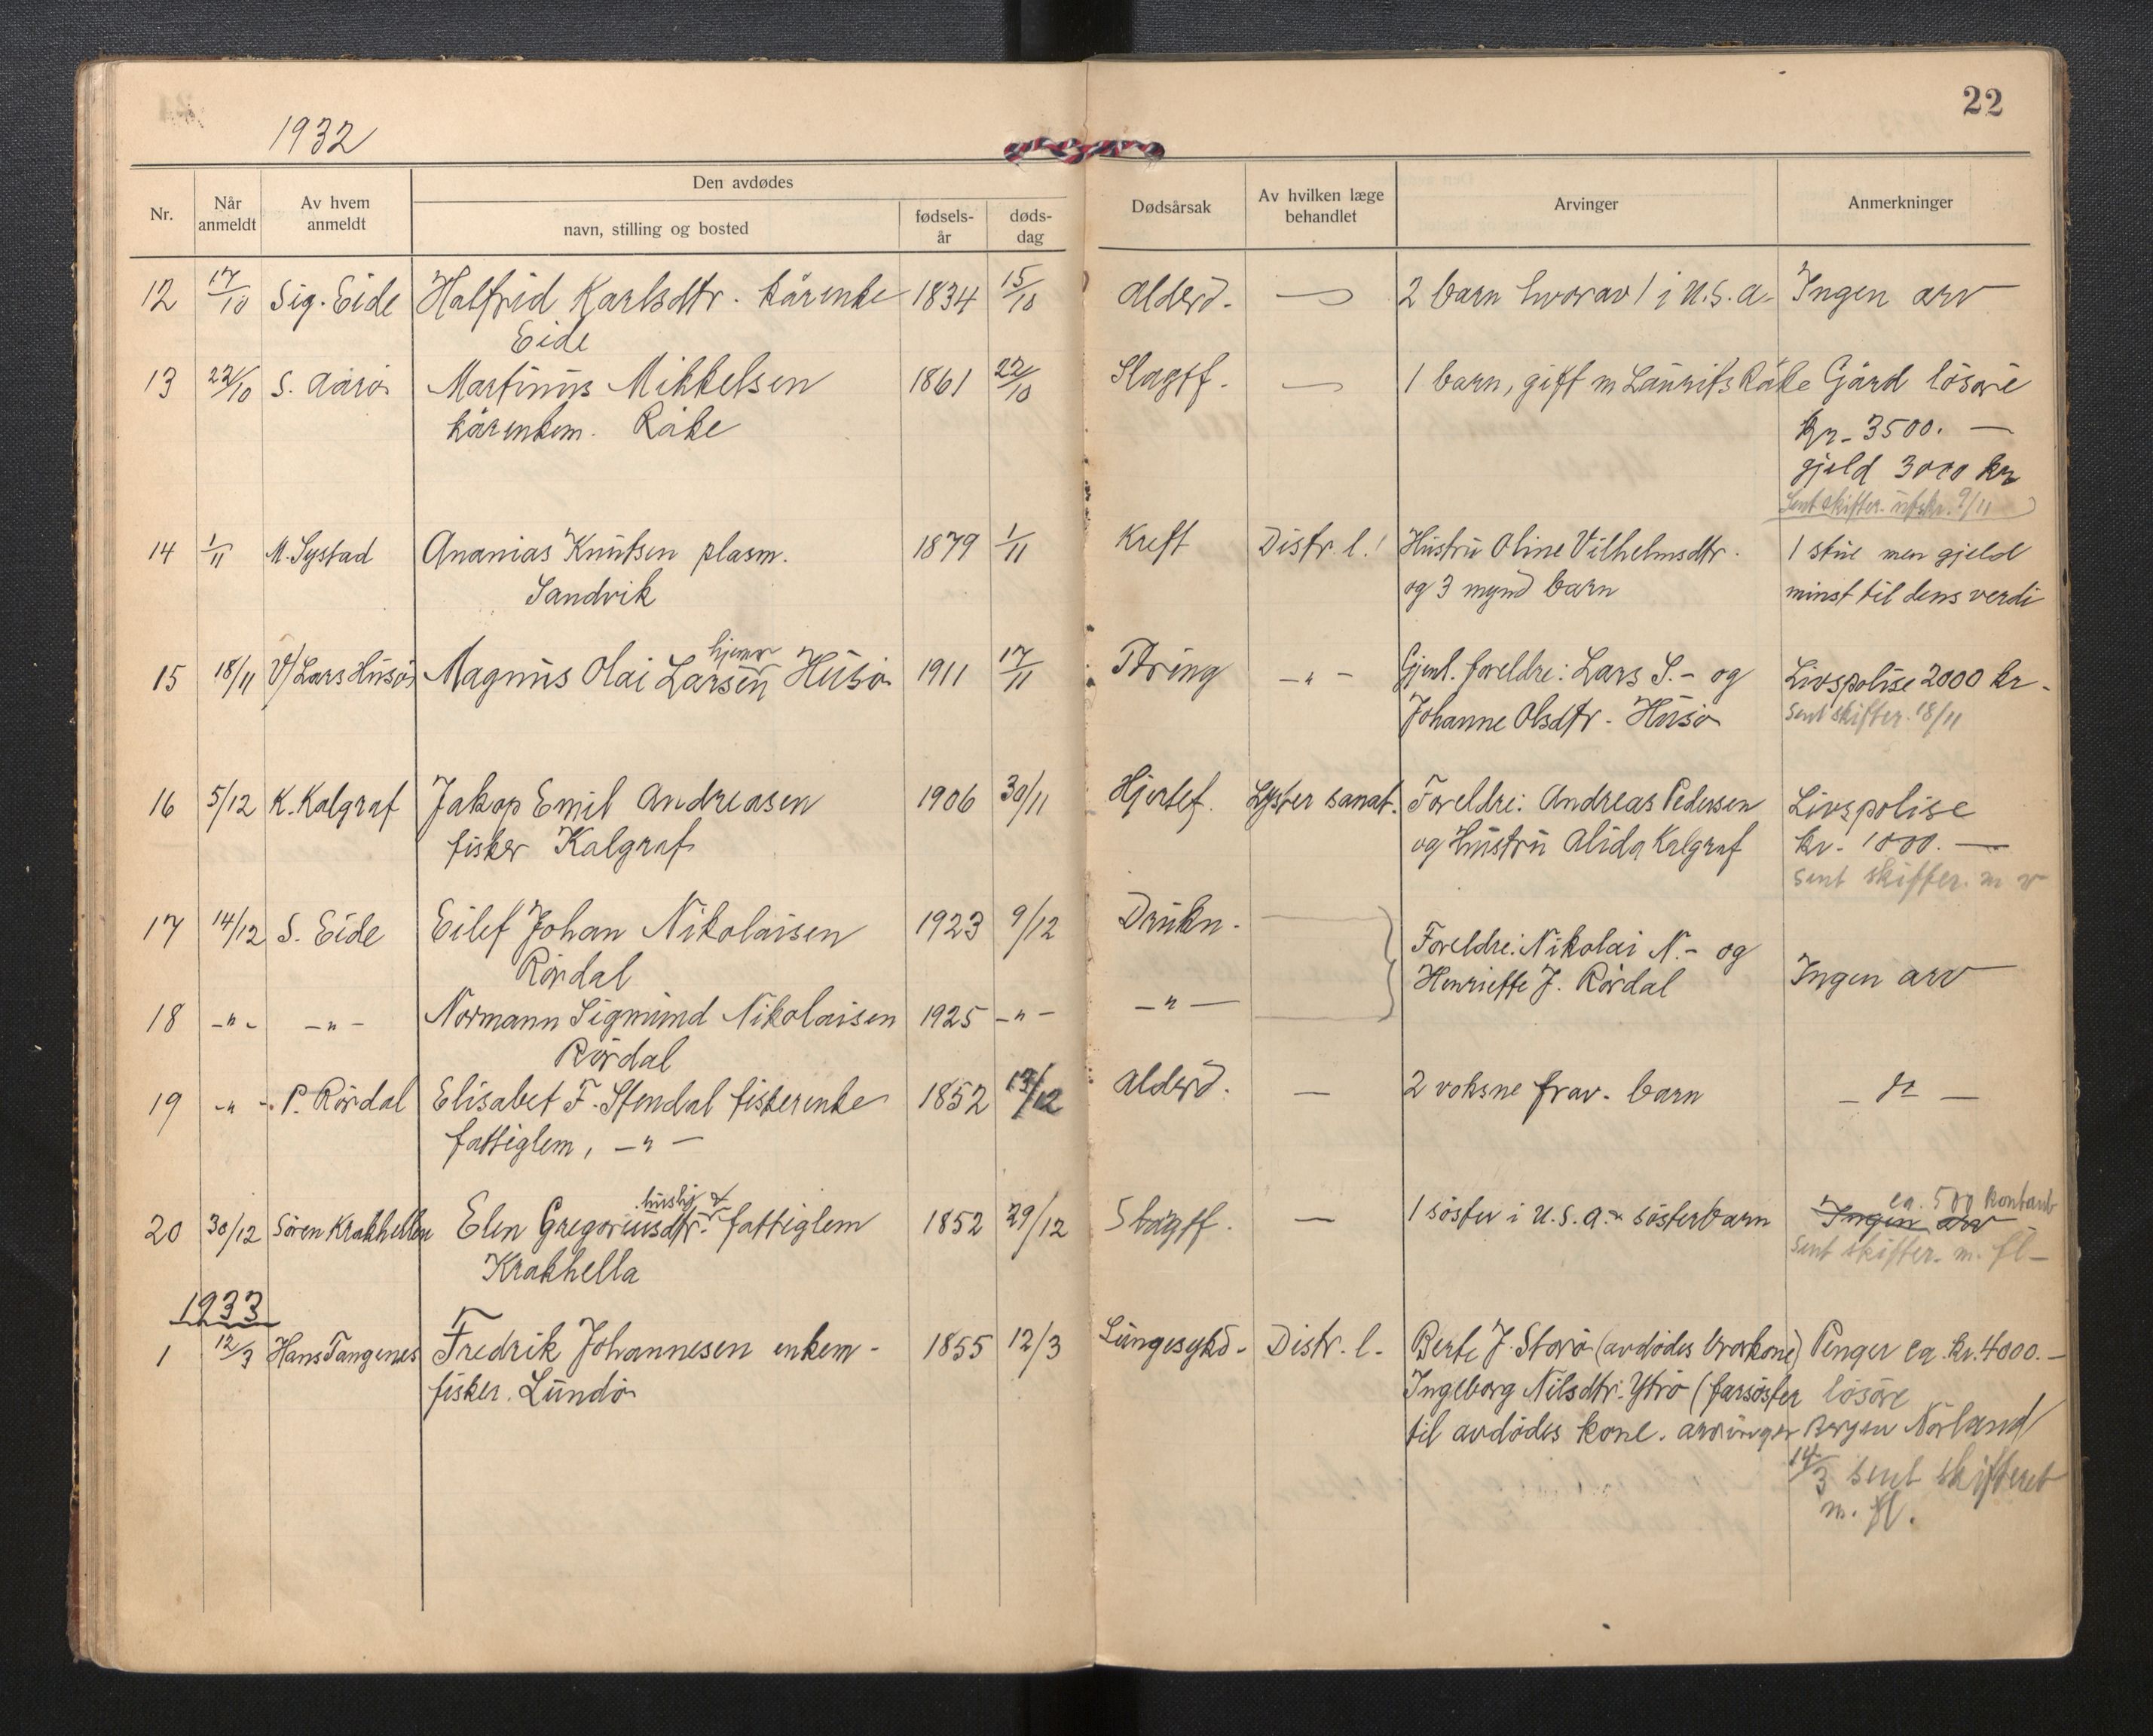 22
1932
Nr.
Når anmeldt
Av hvem anmeldt
Den avdødes
navn, stilling og bosted
fødsels-år
døds-dag
Dødsårsak
Av hvilken læge behandlet
Arvinger
Anmerkninger
12 17/10 Sig. Eide Halfrid Karlsdtr. kårenke 1834 15/10 Alderd. — 2 barn hvorav 1 i U.S.A. Ingen arv
Eide
13 22/10 S. Aarö Martinus Mikkelsen 1861 22/10 Slagtf. — 1 barn, gift m Laurits Råke Gård lösöre
kårenkem. Råke kr. 3500. —
gjeld 3000 kr
Sent skifter. utskr. 9/11
14 1/11 M. Systad Ananias Knutsen plasm. 1879 1/11 Kreft Distr. l. Hustru Oline Vilhelmsdtr. 1 stue men gjeld
Sandvik og 3 mynd barn minst til dens verdi
hjemv
15 18/11 V/ Lars Husö Magnus Olai Larsen Husö 1911 17/11 Tæring — " — Gjenl. foreldre: Lars S. - og Livspolise 2000 kr -
Johanne Olsdtr. Husö Sent skifter. 18/11
16 5/12 K. Kalgraf Jakop Emil Andreasen 1906 30/11 Hjertef. Lyster sanat. Foreldre: Andreas Pedersen Livspolise
fisker Kalgraf og Hustru Alida Kalgraf kr. 1000. —
sent skifter. m
17 14/12 S. Eide Eilef Johan Nikolaisen 1923 9/12 Drukn. — Foreldre: Nikolai N. - og
Rördal Henriette J. Rördal Ingen arv
18 - " - - " - Normann Sigmund Nikolaisen 1925 - " - - " -
Rördal
19 - " - P. Rördal Elisabet F. Stendal fiskerenke 1852 13/12 Alderd. — 2 voksne frav. barn — do —
fattiglem, — " —
huslig ca. 500 kontant
20 30/12 Sören Krakhellen Elen Gregoriusdtr. fattiglem 1852 29/12 Slagtf. — 1 söster i U.S.A. sösterbarn Ingen arv
Krakhella sent skifter. m. fl -
1933
1 12/3 Hans Tangenes Fredrik Johannesen enkem - 1855 12/3 Lungesykd. Distr. l. Berte J. Storö (avdödes brorkone) Penger ca. kr. 4000. —
fisker. Lundö Ingeborg Nilsdtr. Ytrö (farsöster lösöre
til avdödes kone. arvinger Bergen Nörland
14/3 sent skifteret
m. fl.